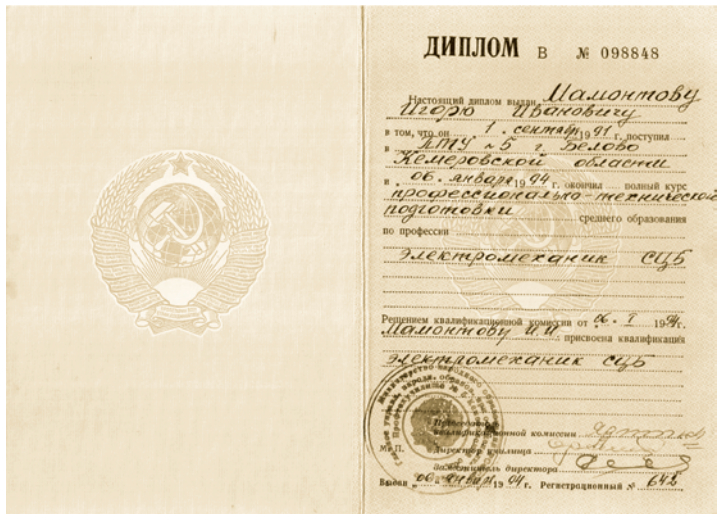 ДИПЛОМ В № 098848
Настоящий диплом выдан Мамонтову
Игорю Ивановичу
в том, что он 1. сентября 1991 г. поступил
в ПТУ №5 г. Белово
Кемеровской области
и 06. января 1994 г. окончил полный курс
профессионально-технической
подготовки среднего образования
по профессии
Электромеханик СЦБ
Решением квалификационной комиссии от 06. I 1994г.
Мамонтову И.И. присвоена квалификация
электромеханик СЦБ
Председатель
квалификационной комиссии
М. П. Директор училища
Заместитель директора
Выдан 06 января 1994 г. Регистрационный № 642